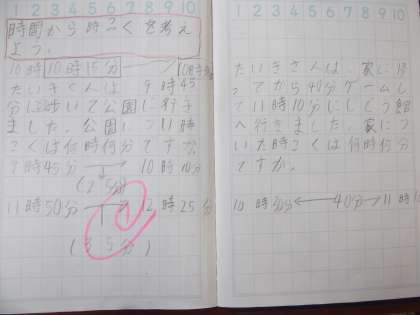 1 2 3 4 5 6 7 8 9 10
時間から時こくを考え
よう。
10時 10時15分
たいきくんは、9時45
分に歩いて公園に行き
ました。公園につ
こくは何時何分ですか
9時45分 10時10分
(25分)
11時50分 12時25分
(35分)
1 2 3 4 5 6 7 8 9 10
たいきさんは、家に帰
ってから40分ゲームし
て11時10分にとしょ館
へ行きました。家につ
いた時こくは何時何分
ですか。
10時30分 40分 11時